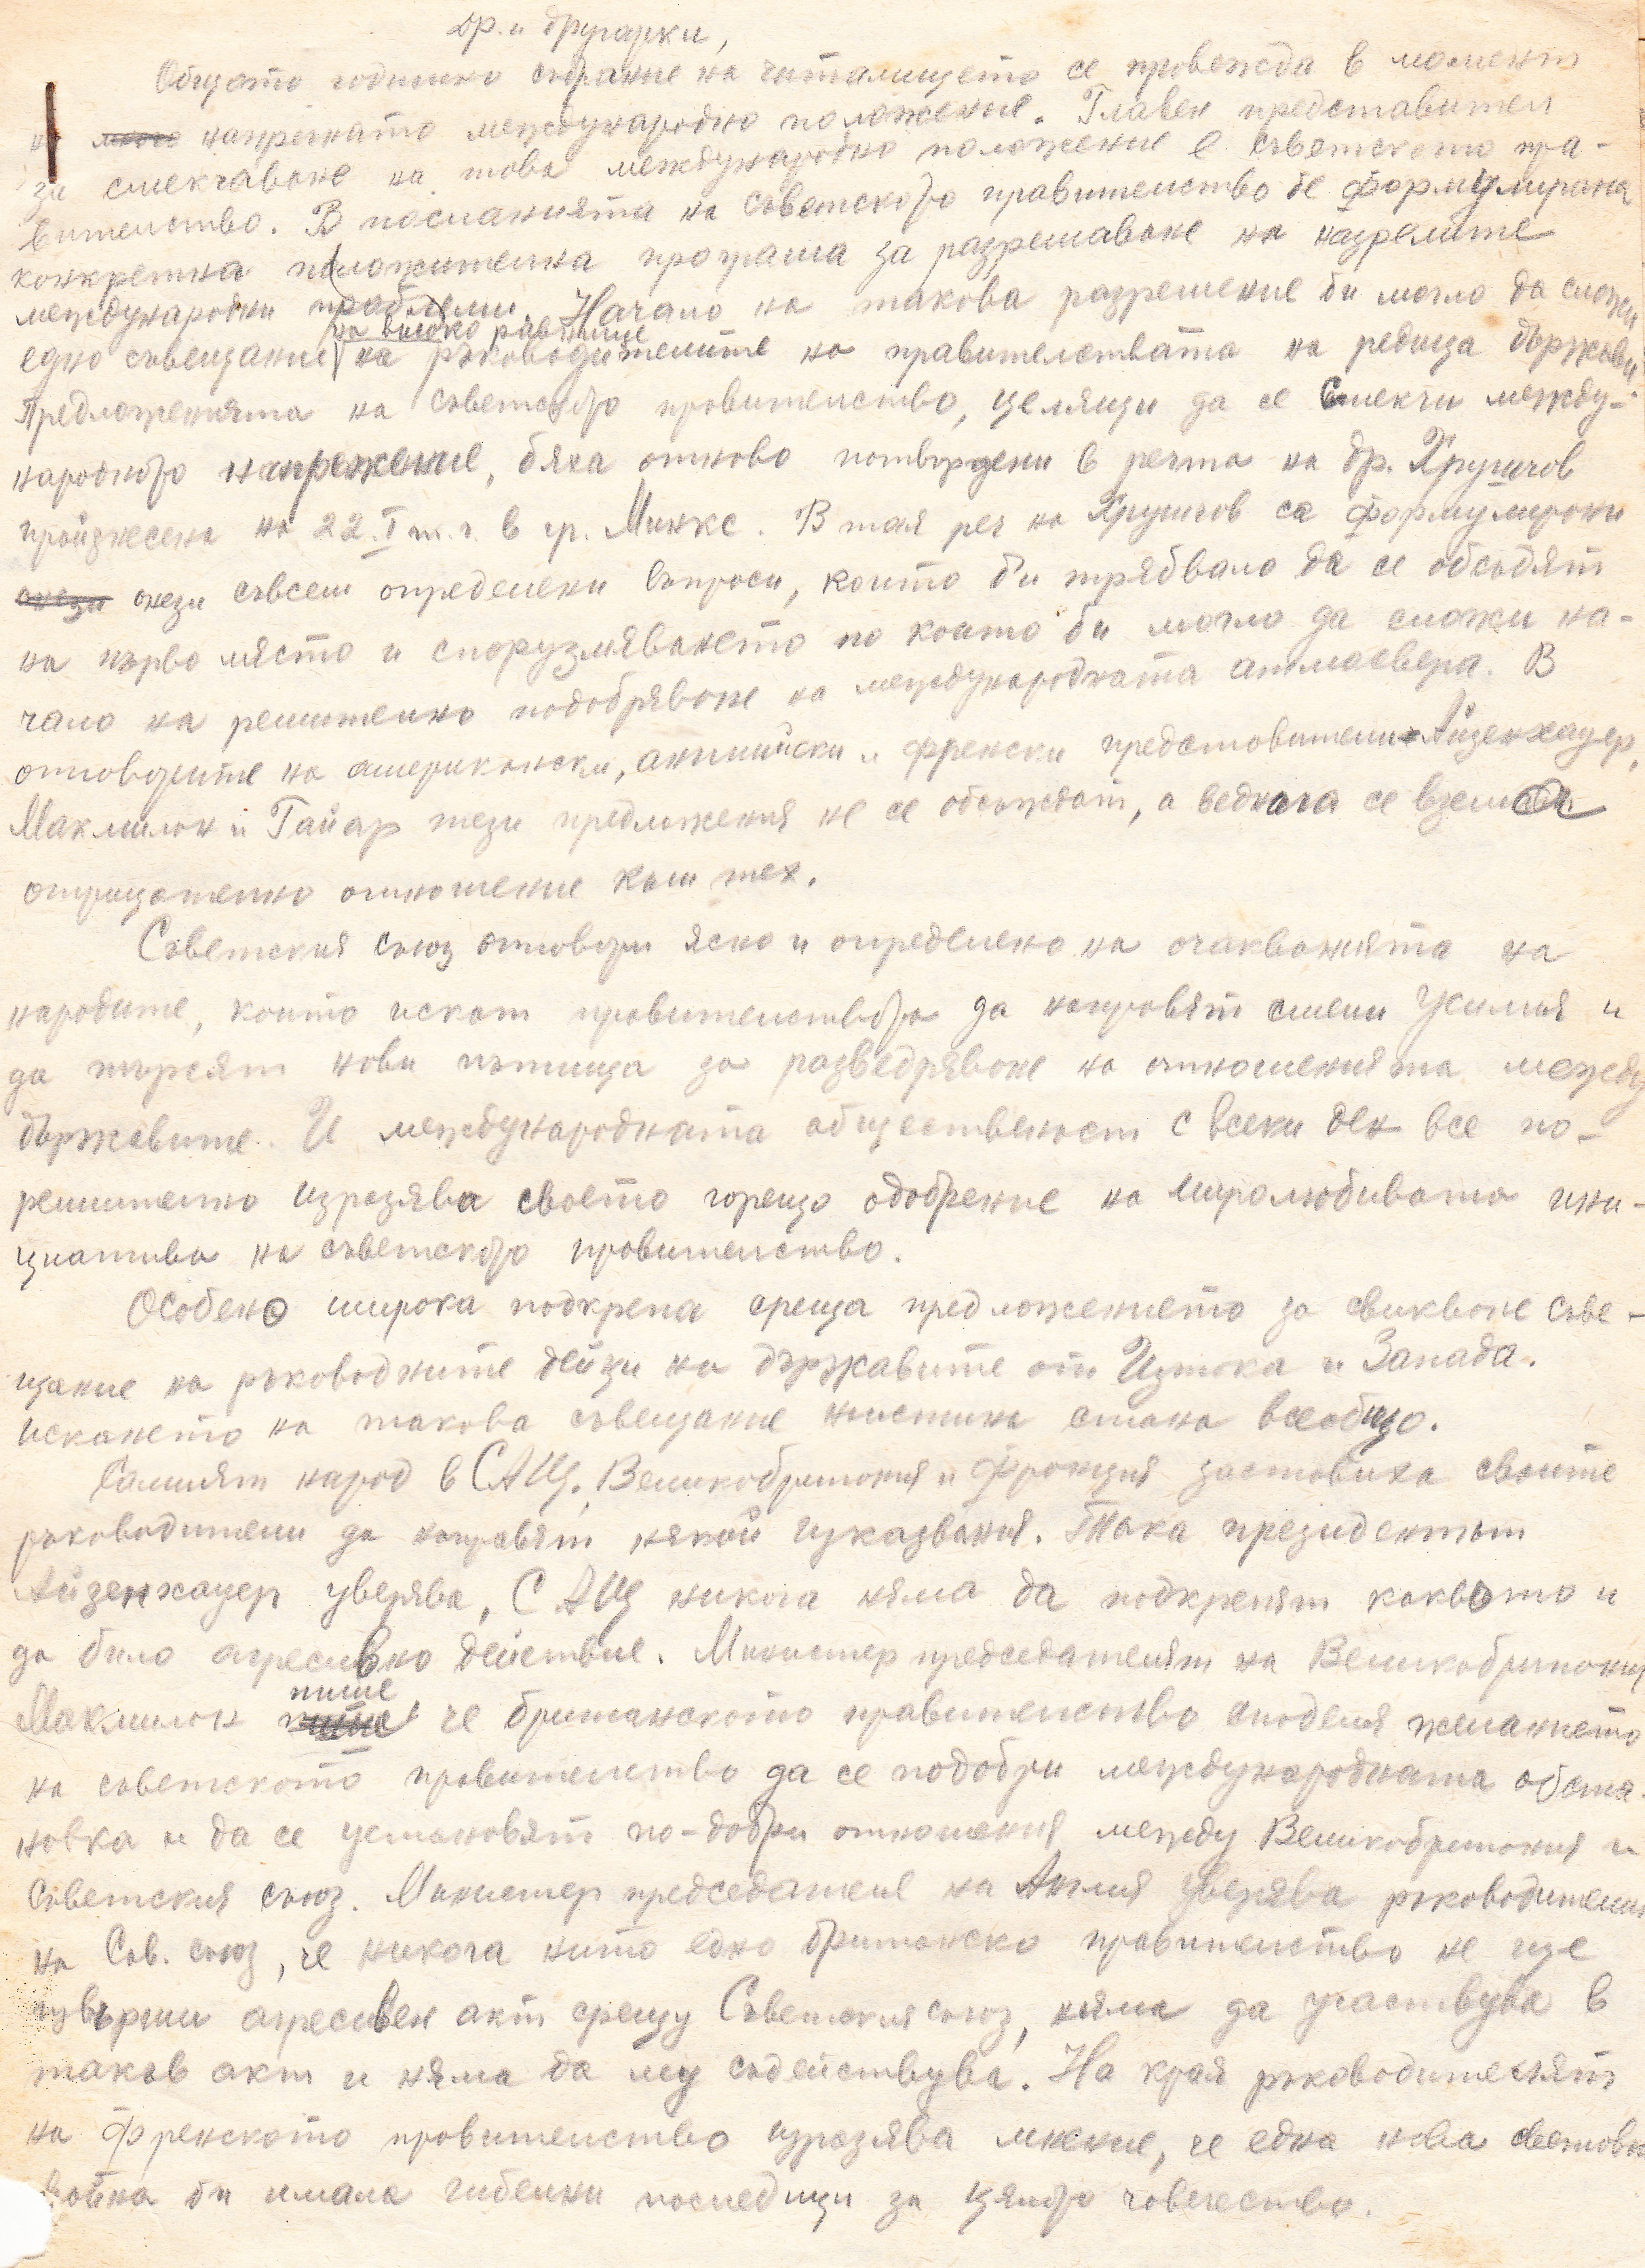 др. и другарки,
Общото годишно събрание на читалището се провежда в момент
на много напрегнато международно положение. Главен представител
за смекчаване на това международно положение е съветското пра-
вителство. В посланията на съветското правителство бе формулирана
конкретна положителна програма за разрешаване на назрелите
международни проблеми. Начало на такова разрешение би могло да сложи
на високо равнище
едно съвещание на ръководителите на правителствата на редица държави.
Предложенията на съветското правителство, целящи да се смекчи между-
народното напрежение, бяха отново потвърдени в речта на др. Хрушчов
произнесена на 22. I т. г. в гр. Минкс. В тая реч на Хрушчов са формулирани
онези онези съвсем определени въпроси, които би трябвало да се обсъдят
на първо място и споразумяването по които би могло да сложи на-
чало на решително подобряване на международната атмосвера. В
отговорите на американски, английски и френски представители Айзенхауер,
Макмилан и Гайар тези предложения не се обсъждат, а веднага се взема
отрицателно отношение към тех.
Съветския съюз отговори ясно и определено на очакванията на
народите, които искат правителствата да направят смели усилия и
да търсят нови пътища за разведряване на отношенията между
държавите. И международната общественост с всеки ден все по-
решително изразява своето горещо одобрение на миролюбивата ини-
циатива на съветското правителство.
Особено широка подкрепа среща предложението за свикване съве-
щание на ръководните дейци на държавите от Изтока и Запада.
искането на такова съвещание наистина стана всеобщо.
Самият народ в САЩ, Великобритания и Франция заставиха своите
ръководители да направят някой изказвания. Така президентът
Айзенхауер уверява, САЩ никога няма да подкрепят каквото и
да било агресивно действие. Министер председателят на Великобритания
пише
Макмилан че британското правителство споделя желанието
на съветското правителство да се подобри международната обста-
новка и да се установят по-добри отношения между Великобритания и
Съветския съюз. Министер председателя на Англия уверява ръководители
на Сов. съюз, че никога нито едно британско правителство не ще
извърши агресивен акт срещу Съветския съюз, няма да участвува в
такъв акт и няма да му съдействува. На края ръководителят
на Френското правителство изразява мнение, че една нова световна
война би имала гибелни последици за цялото човечество.